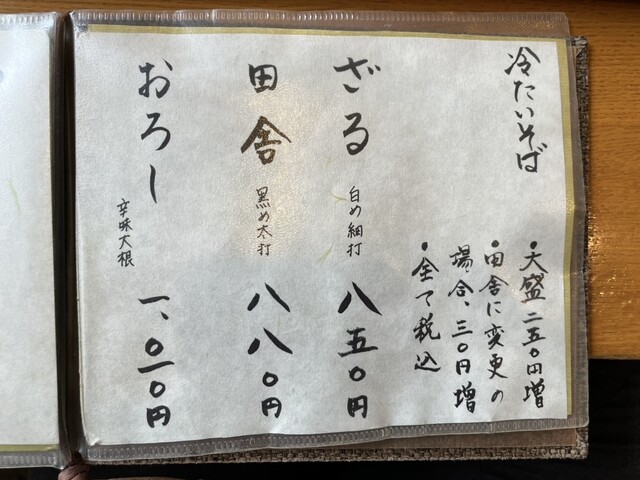 冷たいそば
・大盛二五〇円増
・田舎に変更の
場合、三〇円増
・全て税込
ざる
白め細打
八五〇円
田舎
黒め太打
八八〇円
おろし
辛味大根
一、〇一〇円